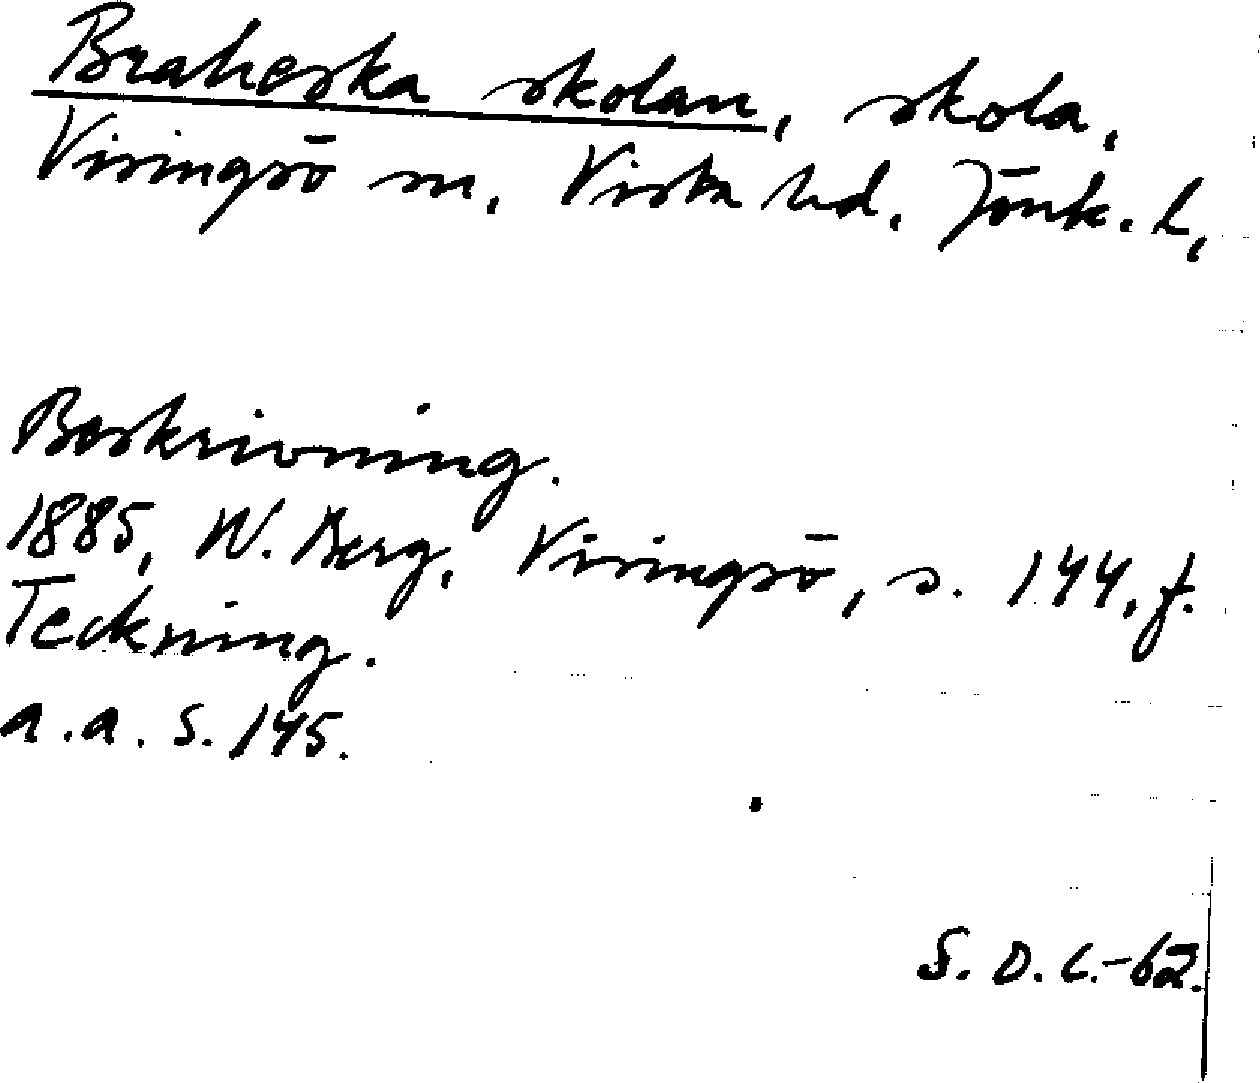 Braheska skolan, skola,
Visingsö sn, Vista hd. Jönk. l,
Beskrivning.
1885, W. Berg, Visingsö, s. 144, f.
Teckning.
a.a. s. 145.
S. D. L.-62.